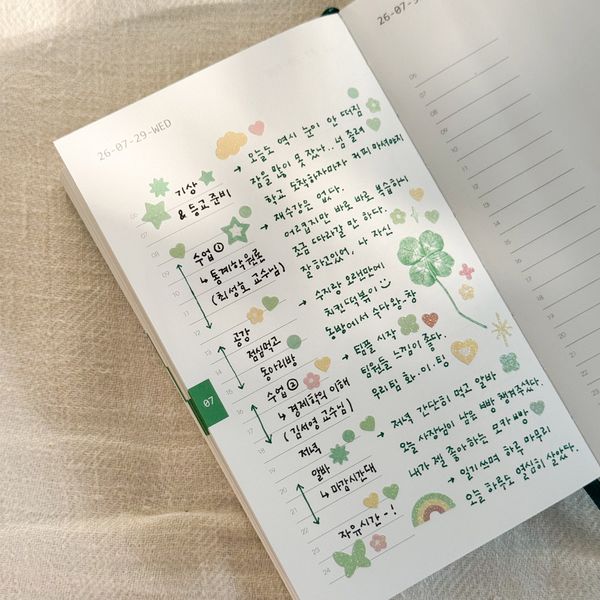 26-07-29-WED
기상
& 등교 준비
→ 오늘도 역시 눈이 안 떠짐
잠을 많이 못 잤나.. 넘 졸려
학교 도착하자마자 커피 마셔야지
수업 ①
↳ 통계학원론
(최성호 교수님)
→ 재수강은 없다.
어렵지만 바로 바로 복습하니
조금 따라갈 만 하다.
잘하고있어, 나 자신
공강
점심먹고
동아리방
→ 수지랑 오랜만에
치킨떡볶이
동방에서 수다와.창
수업 ②
↳ 경제학의 이해
(김성영 교수님)
→ 팀플 시작
팀원들 느낌이 좋다.
우리팀 화.이.팅
저녁
알바
↳ 마감시간대
→ 저녁 간단히 먹고 알바
오늘 사장님이 남은 빵 챙겨주셨다.
내가 젤 좋아하는 모카빵
자유시간 - !
→ 일기쓰며 하루 마무리
오늘 하루도 열심히 살았다.
06
07
08
09
10
11
12
13
14
15
16
17
18
19
20
21
22
23
24
07
26-07-3
06
07
08
09
10
11
12
13